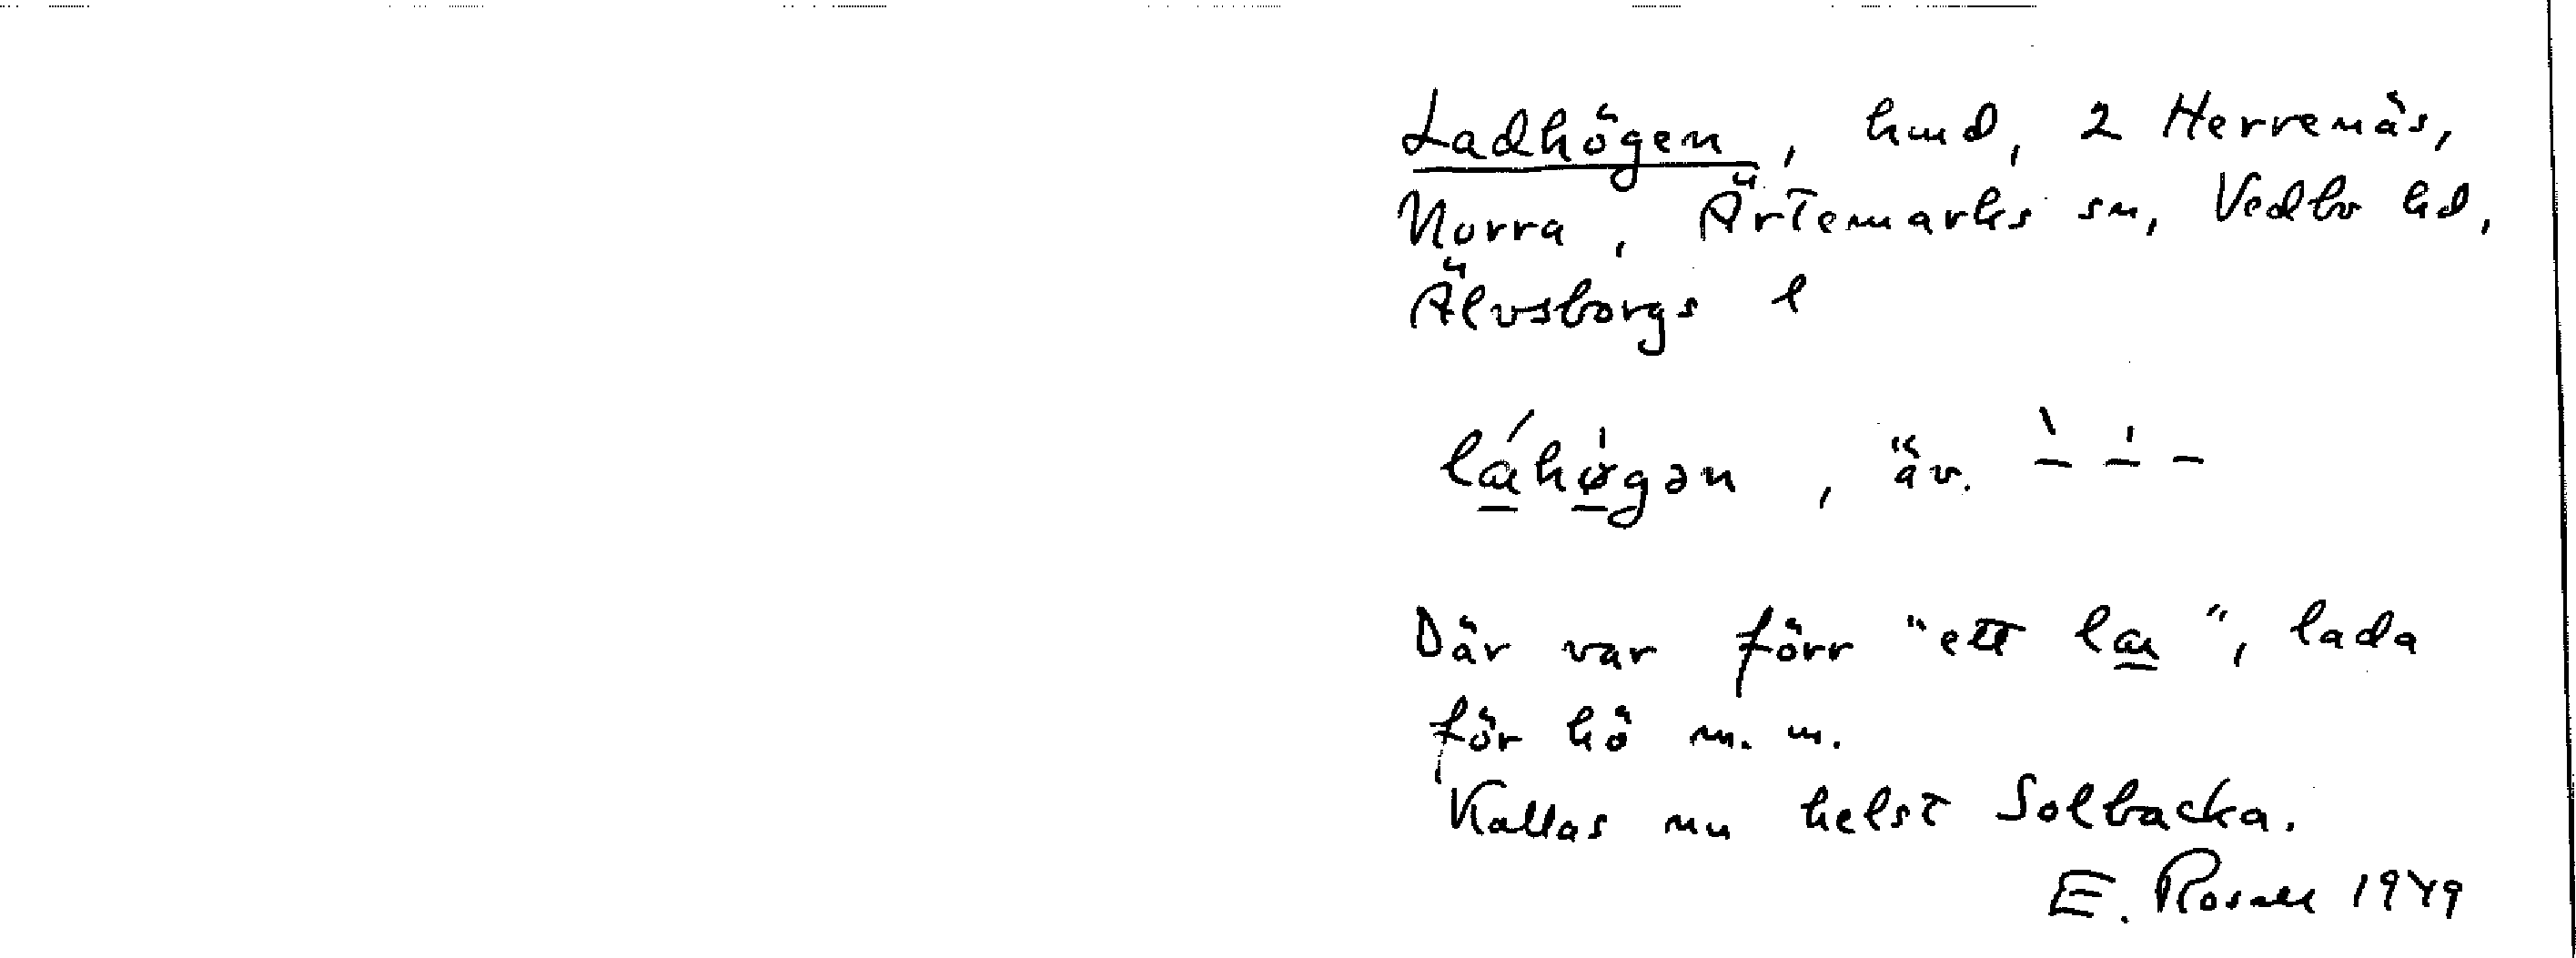 Ladhögen, hmd, 2 Herrenäs,
Norra, Ärtemarks sn, Vedbo hd,
Älvsborgs l
lάhøgən, äv. ` ˈ –
Där var förr "ett lα", lada
för hö m. m.
Kallas nu helst Solbacka.
E. Rosell 1949